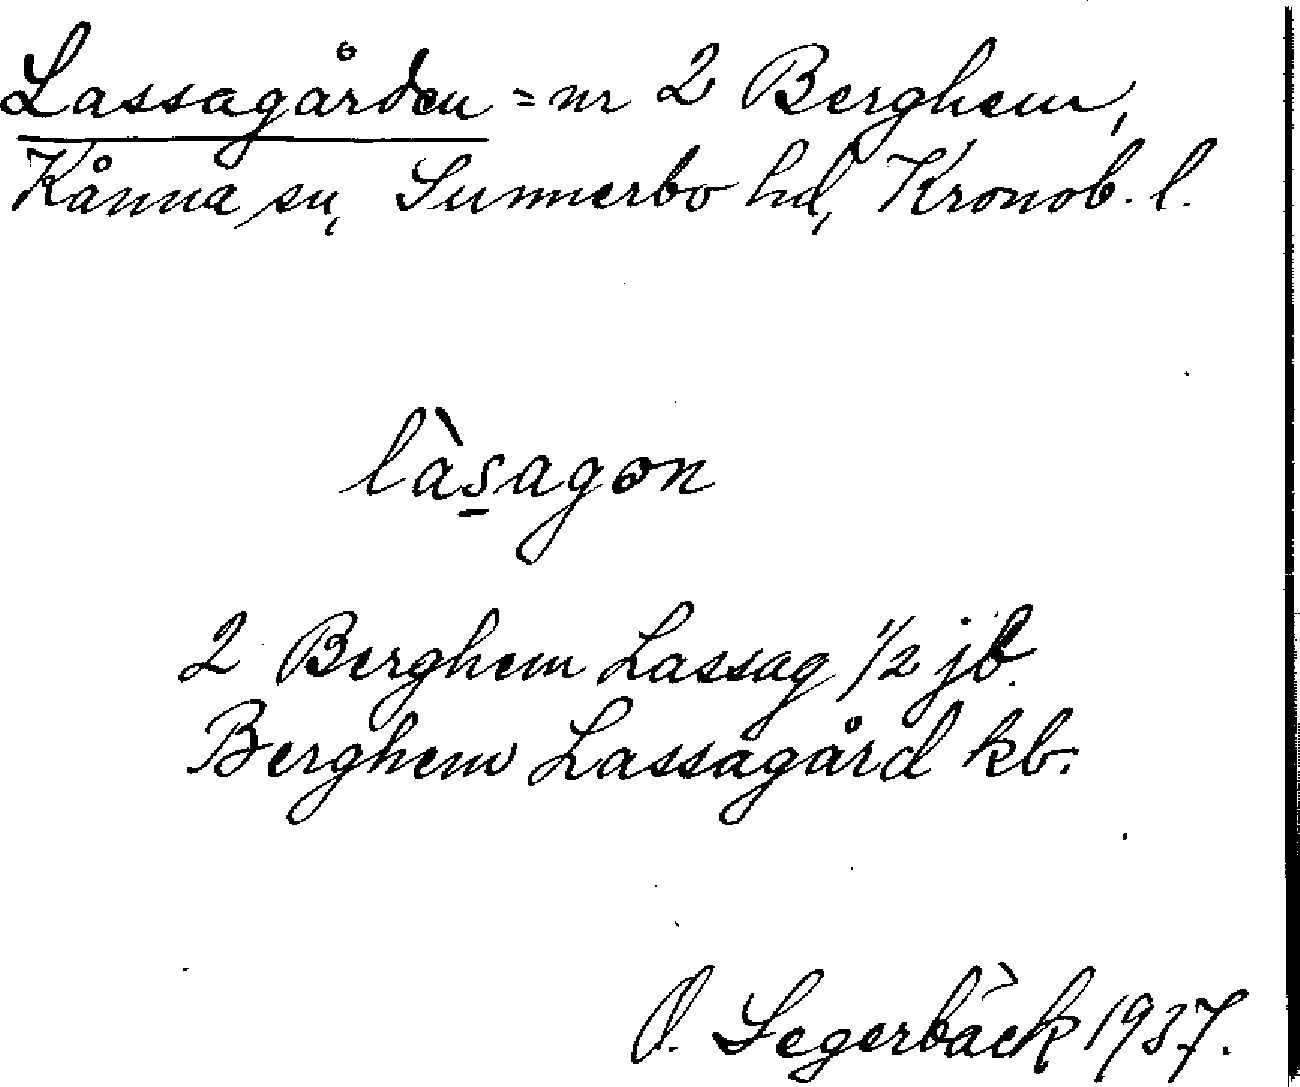 Lassagården = nr 2 Berghem,
Kånna sn, Sunnerbo hd, Kronob. l.
làs̲agon
2 Berghem Lassag 1/2 jb.
Berghem Lassagård kb.
O. Segerbäck 1937.